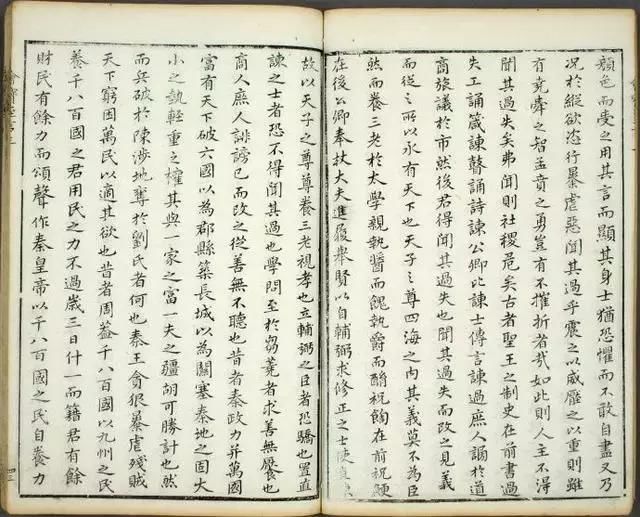 顏色而受之用其言而顯其身士猶恐懼而不敢自盡又乃
況於縱欲恣行暴虐惡聞其過乎震之以威壓之以重則雖
有堯舜之智孟賁之勇豈有不摧折者哉如此則人主不得
聞其過失矣弗聞則社稷危矣古者聖王之制史在前書過
失工誦箴諫瞽誦詩諫公卿比諫士傳言諫過庶人謗於道
商旅議於市然後君得聞其過失也聞其過失而改之見義
而從之所以永有天下也天子之尊四海之內其義莫不為臣
然而養三老於太學親執醬而餽執爵而酳祝餉在前祝鯁
在後公卿奉杖大夫進履舉賢以自輔弼求修正之士使直
故以天子之尊尊養三老視孝也立輔弼之臣者恐驕也置直
諫之士者恐不得聞其過也學問至於芻蕘者求善無饜也
商人庶人誹謗己而改之從善無不聽也昔者秦政力并萬國
富有天下破六國以為郡縣築長城以為關塞秦地之固大
小之埶輕重之權其與一家之富一夫之彊胡可勝計也然
而兵破於陳涉地奪於劉氏者何也秦王貪狼暴虐殘賊
天下窮困萬民以適其欲也昔者周蓋千八百國以九州之民
養千八百國之君用民之力不過歲三日什一而籍君有餘
財民有餘力而頌聲作秦皇帝以千八百國之民自養力